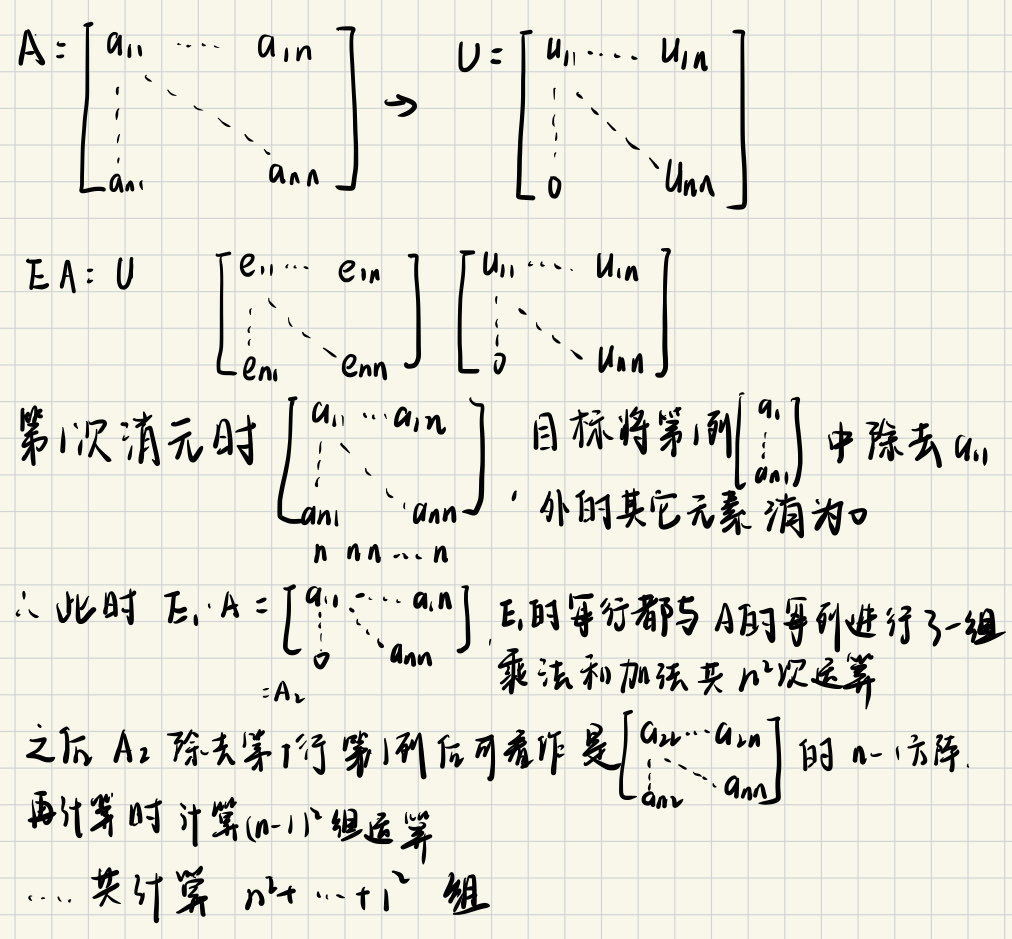 A = [ a₁₁ ···· a₁n ⋮ ⋱ an₁ ann ] → U = [ u₁₁ ····· u₁n ⋮ ⋱ 0 unn ]
EA = U [ e₁₁ ··· e₁n ⋮ ⋱ en₁ enn ] [ u₁₁ ····· u₁n ⋮ ⋱ 0 unn ]
第1次消元时 [ a₁₁ ··· a₁n ⋮ ⋱ an₁ ann ] 目标将第1列 [ a₁ ⋮ an₁ ] 中除去 a₁₁
, 外的其它元素 消为0
n n n ··· n
∴ 此时 E₁·A = [ a₁₁ ····· a₁n ⋮ ⋱ 0 ann ] , E₁的每行都与 A的每列进行了一组
= A₂ 乘法和加法共 n²次运算
之后 A₂ 除去第1行第1列后可看作是 [ a₂₂ ··· a₂n ⋮ ⋱ an₂ ann ] 的 n-1方阵.
再计算时 计算(n-1)²组运算
····· 共计算 n²+ ··· +1² 组